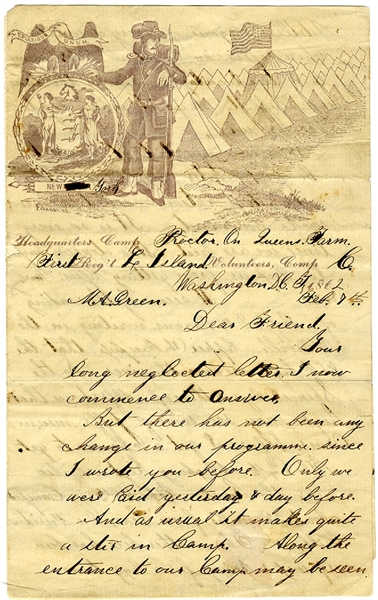 E PLURIBUS UNUM
NEW York
Headquarters Camp Proctor. On Queens. Farm.
First Reg't L. Island Volunteers, Comp C.
Washington D.C. 1862
Feb. 7th
Mt. Green.
Dear Friend.
Your
long neglected letter I now
commence to answer.
But there has not been any
change in our programme since
I wrote you before. Only we
were Paid yesterday & day before.
And as usual it makes quite
a stir in Camp. Along the
entrance to our Camp may be seen